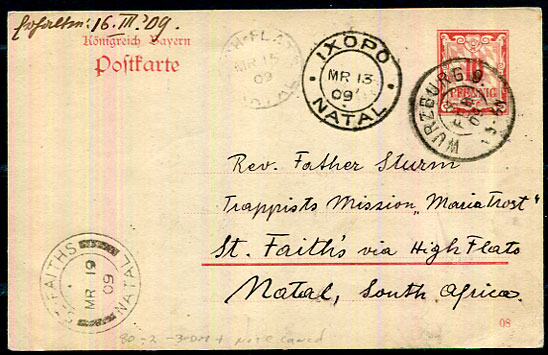 Erhalten: 16. III. '09.
Königreich Bayern
Postkarte
H-FLATS
MR 15
09
NATAL
IXOPO
MR 13
09
NATAL
PFENNIG
WURZBURG 9.
FEB
09
Rev. Father Sturm
Trappists Mission „Maria Trost"
St. Faith's via High Flats
Natal, South Africa.
ST. FAITHS
MR 19
09
NATAL
08